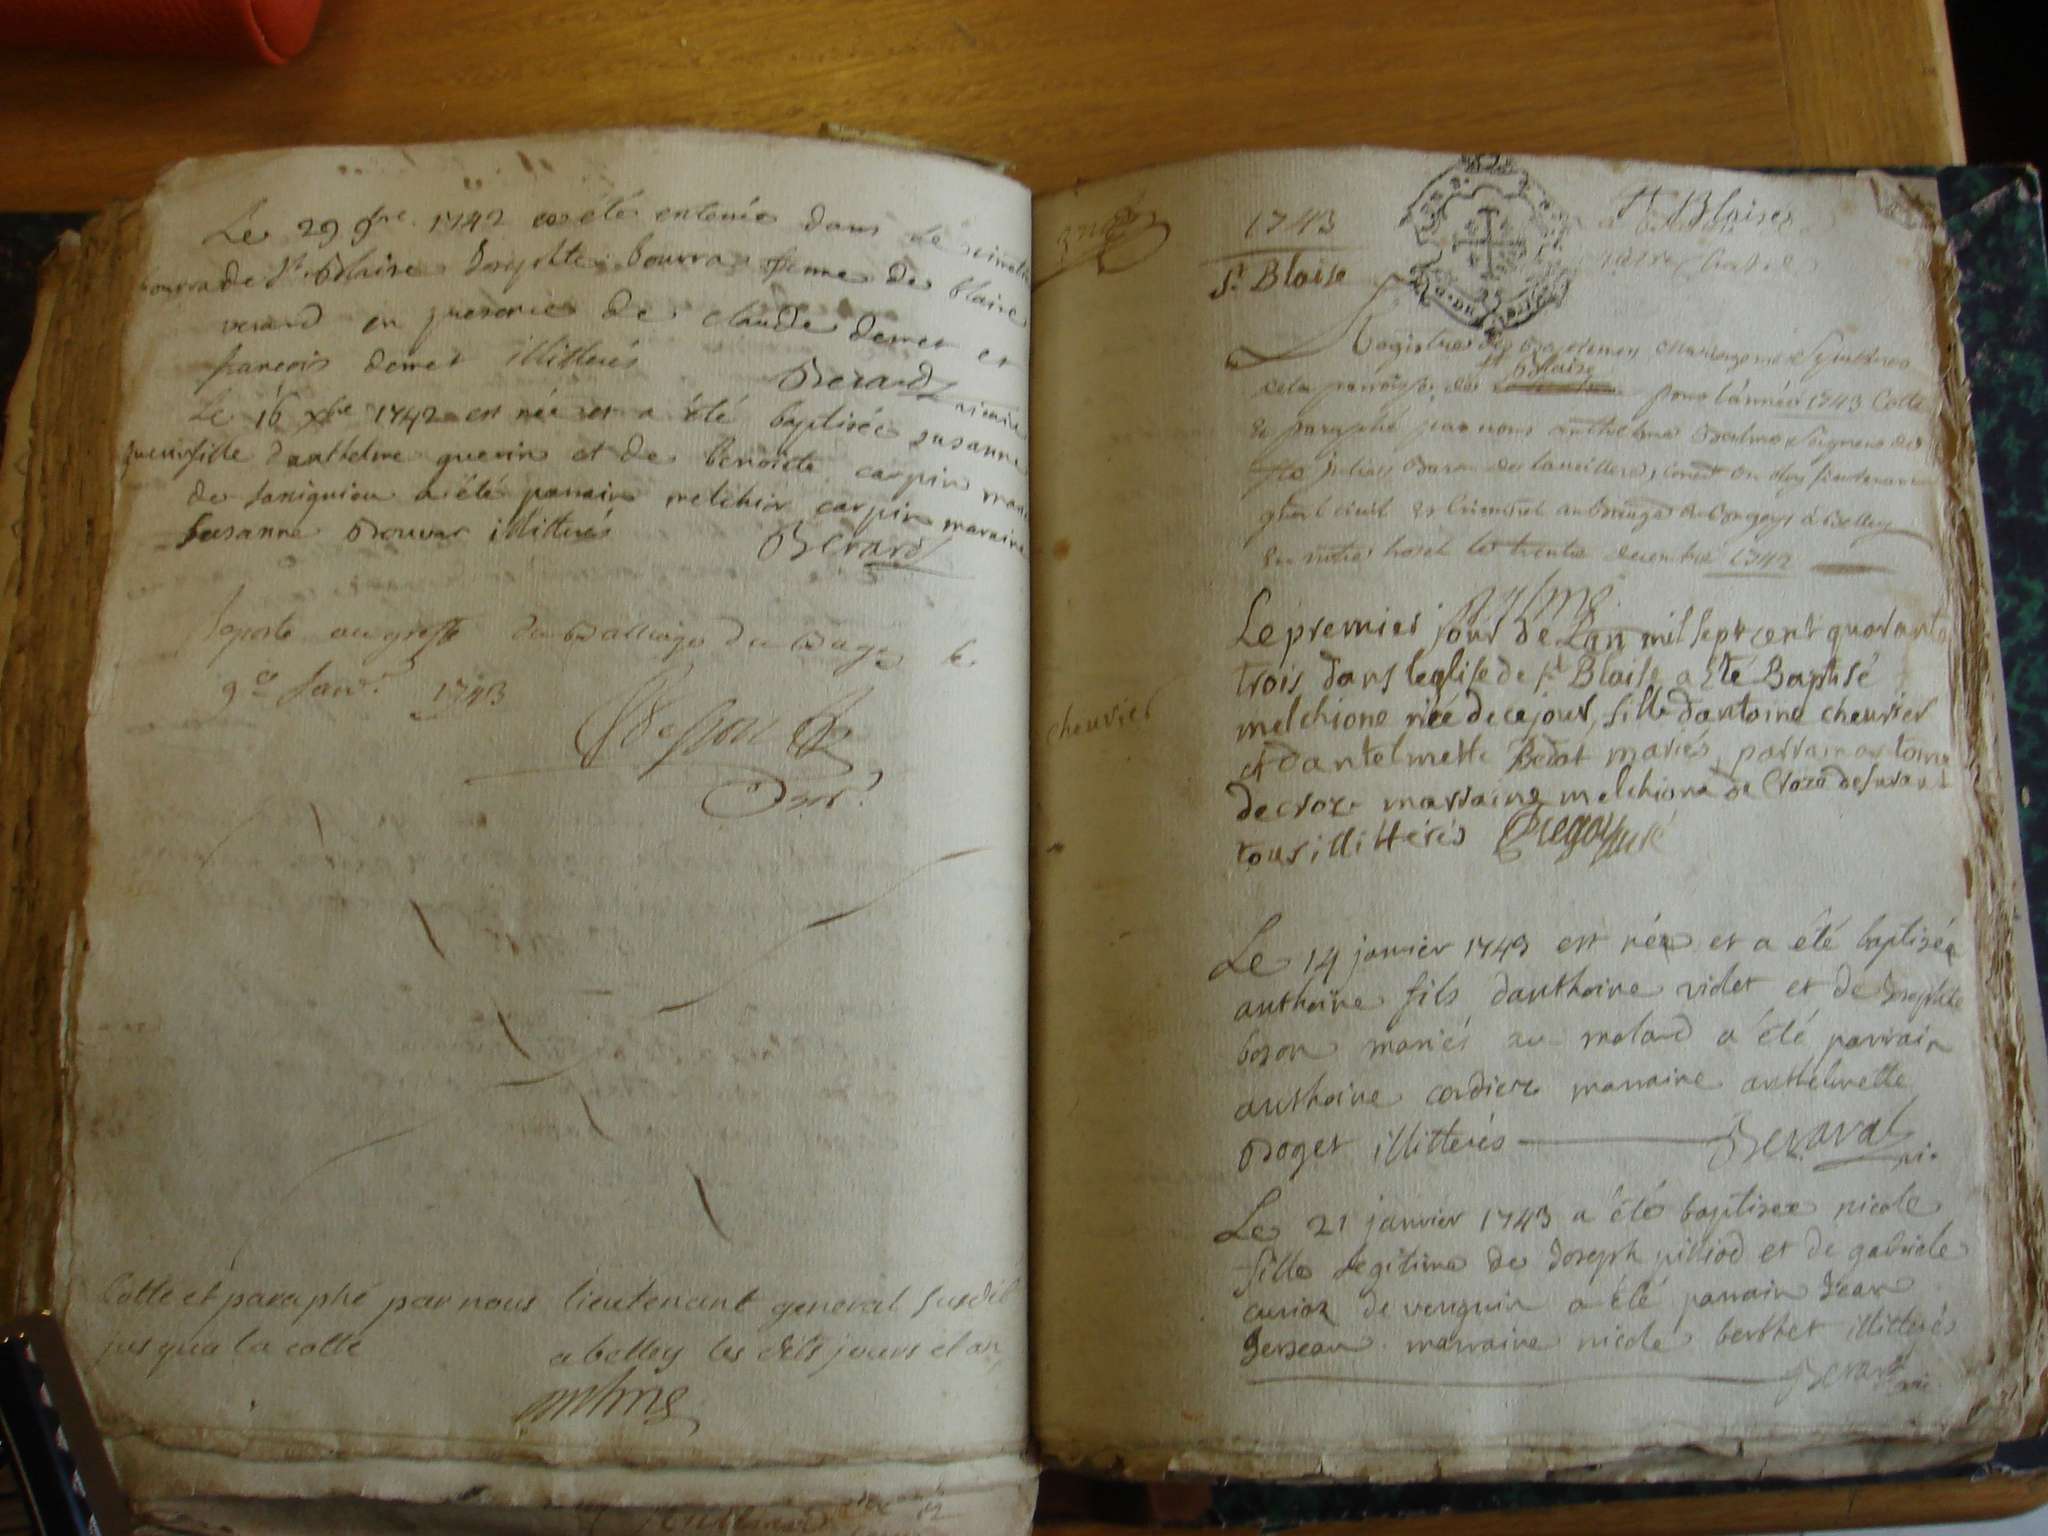 Le 29 9bre 1742 a été enterrée dans le cimetiere
bourra de St Blaise Josephte bourra femme de blaise
verard en presence de claude demet et
francois demet illitterés Berard vicaire
Le 16 xbre 1742 est née et a été baptisée susanne
guerin fille d'anthelme guerin et de Benoite carpin mariés
de a été parrain melchior carpin maraine
susanne Bouvar illitterés Berard
au greffe du Balliage du Bugey le
9e Janv. 1743
Cotte et paraphé par nous lieutenant general susdit
jusqua la cotte a belley les dits jours et an
1743
St Blaise
St Blaise
Registre des Baptemes mariages et sepultures
de la paroisse de St Blaise pour l'année 1743 Cotté
et paraphé par nous anthelme Seigneur de
St Julien Baron de lieutenant
civil et Criminel au Bailliage du Bugey à Belley
en notre hotel le trente decembre 1742
Le premier jour de Lan mil sept cent quarante
trois dans leglise de St Blaise a Eté Baptisé
chevrier
melchione née de ce jour, fille dantoine chevrier
et dantelmette Bedat mariés, parrain antoine
decroze marraine melchione de Croze de surant
tous illittérés curé
Le 14 janvier 1743 est née et a été baptisée
anthoine fils danthoine violet et de Josephte
bozon mariés au molard a été parrain
anthoine cordier marraine anthelmette
Boget illitterés Beraral vi.
Le 21 janvier 1743 a été baptisee nicole
fille legitime de Joseph pilliod et de gabriele
de a été parrain Jean
Jersean marraine nicole berthet illitterés
Berard